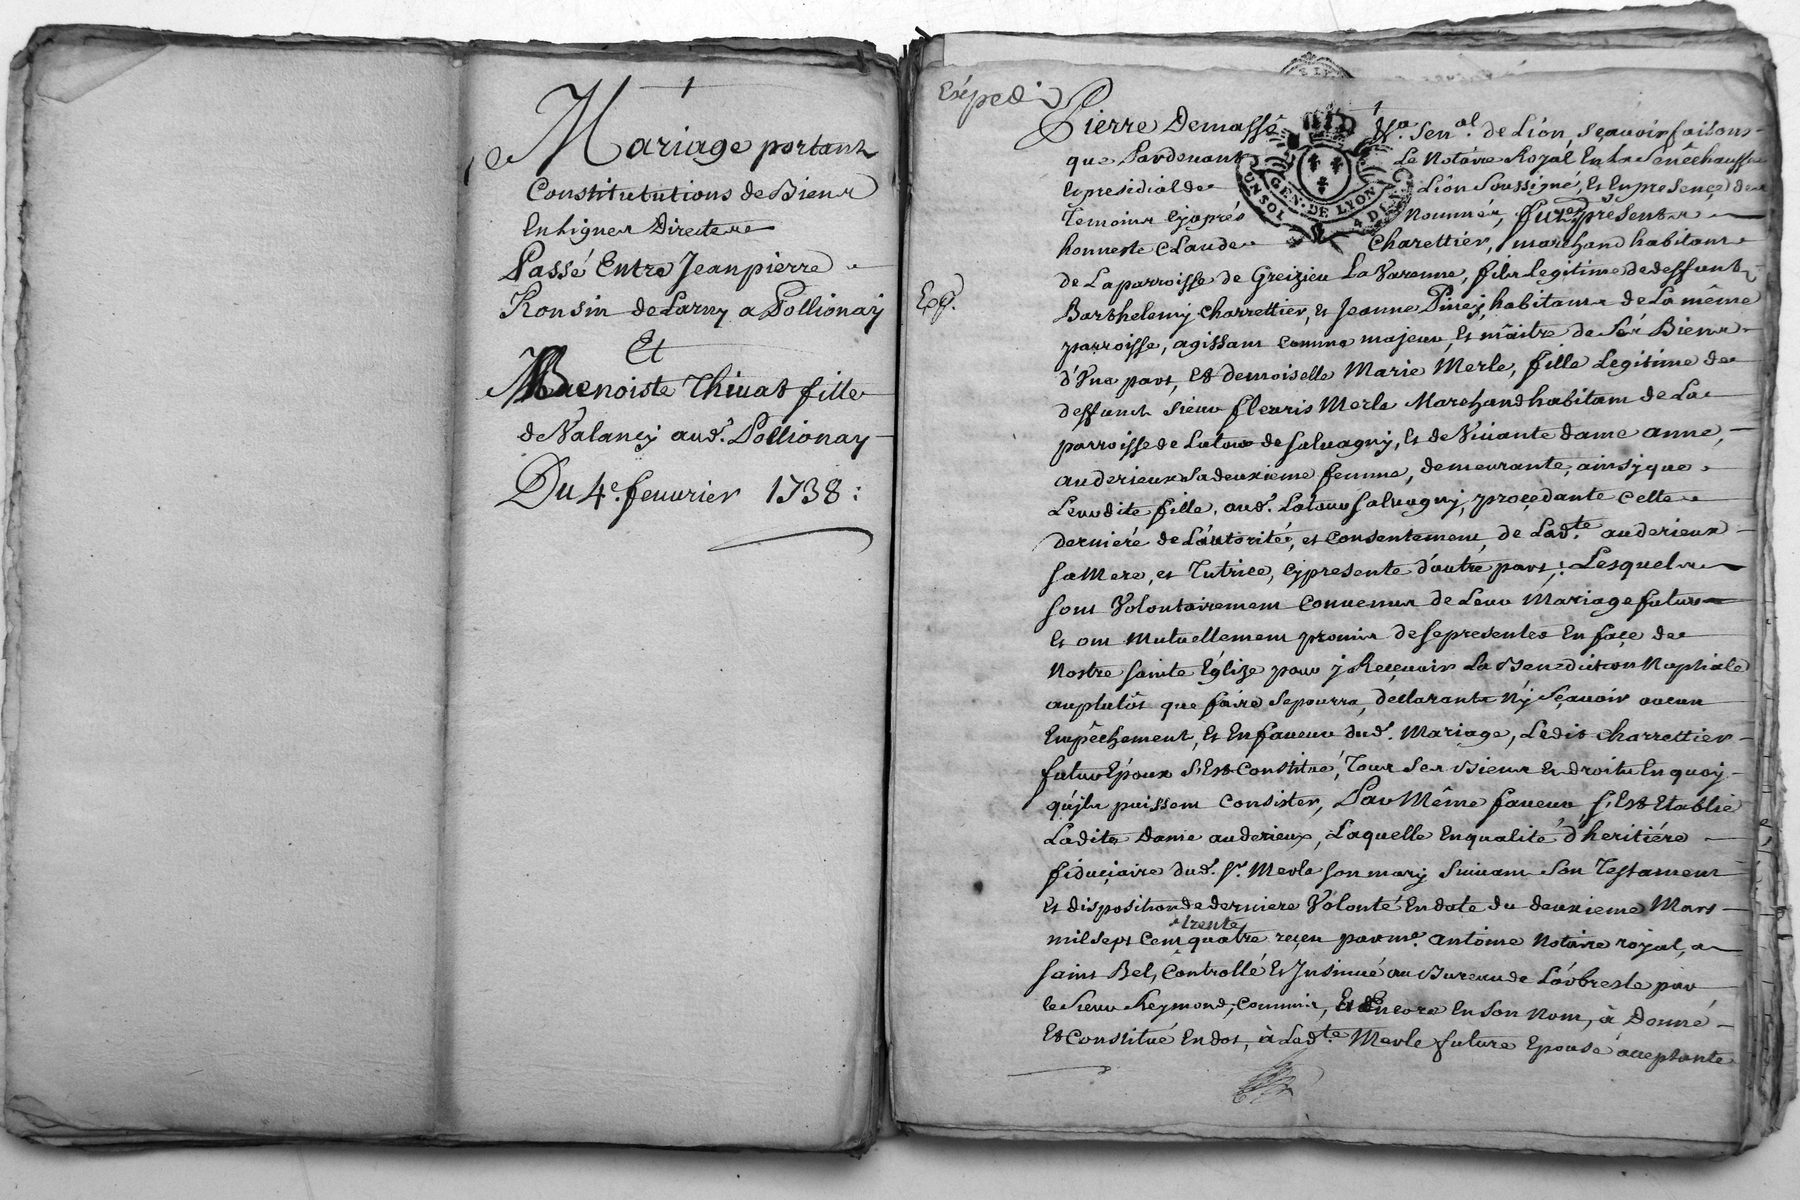 Mariage portant
Constitutions de Biens
En Lignes Directes
Passé Entre Jean pierre
Ronsin de Larny a Pollionay
Et
Benoiste Thiuat fille
de Valancy aud. Pollionay
Du 4e. feuurier 1738 :
Expedé
Pierre Demassé Va. Senal. de Lion, sçavoir faisons
que Pardevant Le Notaire Royal En La Senéchaussée
Et presidial de Lion Soussigné, Et En presence des
Temoins Cy aprés Nommés, furent presents
honneste Claude Charettier, marchand habitant
GEN. DE LYON
UN SOL 4 DEN
de La parroisse de Greizieu La Varenne, fils Legitime de deffunt
Exp.
Barthelemy Charrettier, et Jeanne Piney, habitants de La même
parroisse, agissant comme majeur Et maitre de Ses Biens
d'Une part, Et demoiselle Marie Merle, fille Legitime de
deffunct Sieur fleuris Merle Marchand habitant de La
parroisse de Latour de Salvagny, Et de Vivante dame anne
auderieux Sa deuxieme femme, demeurante, ainsy que
Leurdite fille, aud. Latour Salvagny, procedante Cette
derniere de L'autorité, et Consentement, de Ladte. auderieux
Sa Mere, et Tutrice, Cy presente d'autre part ; Lesquels
Sont Volontairement Convenus de Leur Mariage futur
Et ont Mutuellement promis de Se presenter En face de
Nostre Sainte Eglize pour y Recevoir La Benediction Nuptiale
au plutôt que faire Se pourra, declarants N'y Sçavoir aucun
Empêchement, Et En faveur dud. Mariage, Ledit Charrettier
futur Epoux S'Est Constitué, Tous Ses Biens Et droits En quoy
qu'jls puissent Consister, Par Même faveur S'Est Etablie
Ladite Dame auderieux, Laquelle En qualité d'heritiére
fiduciaire dud. Sr. Merle Son mary Suivant Son Testament
Et disposition de derniere Volonté En date du deuxieme Mars
trente
mil sept Cent quatre reçeu par me. antoine Notaire royal, a
Saint Bel, Controllé Et Jnsinué au Bureau de L'arbresle par
le Sieur Reymond, Commis, Et Encore En Son Nom, à Donné
Et Constitué En dot, à Ladte. Merle future Epouse acceptante